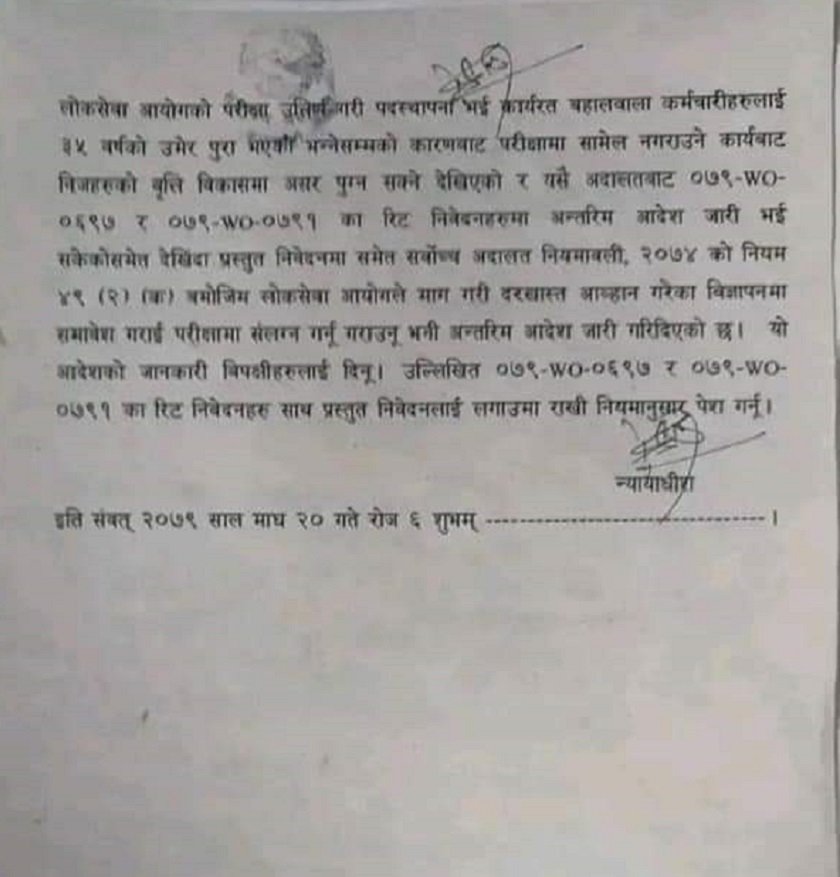 लोकसेवा आयोगको परीक्षा उतिर्ण गरी पदस्थापना भई कार्यरत बहालवाला कर्मचारीहरुलाई
३५ वर्षको उमेर पुरा भएको भन्नेसम्मको कारणबाट परीक्षामा सामेल नगराउने कार्यबाट
निजहरुको बृत्ति विकासमा असर पुग्न सक्ने देखिएको र यसै अदालतबाट ०७९-WO-
०६९७ र ०७९-WO-०७९१ का रिट निवेदनहरुमा अन्तरिम आदेश जारी भई
सकेकोसमेत देखिंदा प्रस्तुत निवेदनमा समेत सर्वोच्च अदालत नियमावली, २०७४ को नियम
४९ (२) (क) बमोजिम लोकसेवा आयोगले माग गरी दरखास्त आव्हान गरेका विज्ञापनमा
समावेश गराई परीक्षामा संलग्न गर्नू गराउनू भनी अन्तरिम आदेश जारी गरिदिएको छ। यो
आदेशको जानकारी विपक्षीहरुलाई दिनू। उल्लिखित ०७९-WO-०६९७ र ०७९-WO-
०७९१ का रिट निवेदनहरु साथ प्रस्तुत निवेदनलाई लगाउमा राखी नियमानुसार पेश गर्नू।
न्यायाधीश
इति संवत् २०७९ साल माघ २० गते रोज ६ शुभम् ------------------------------------।